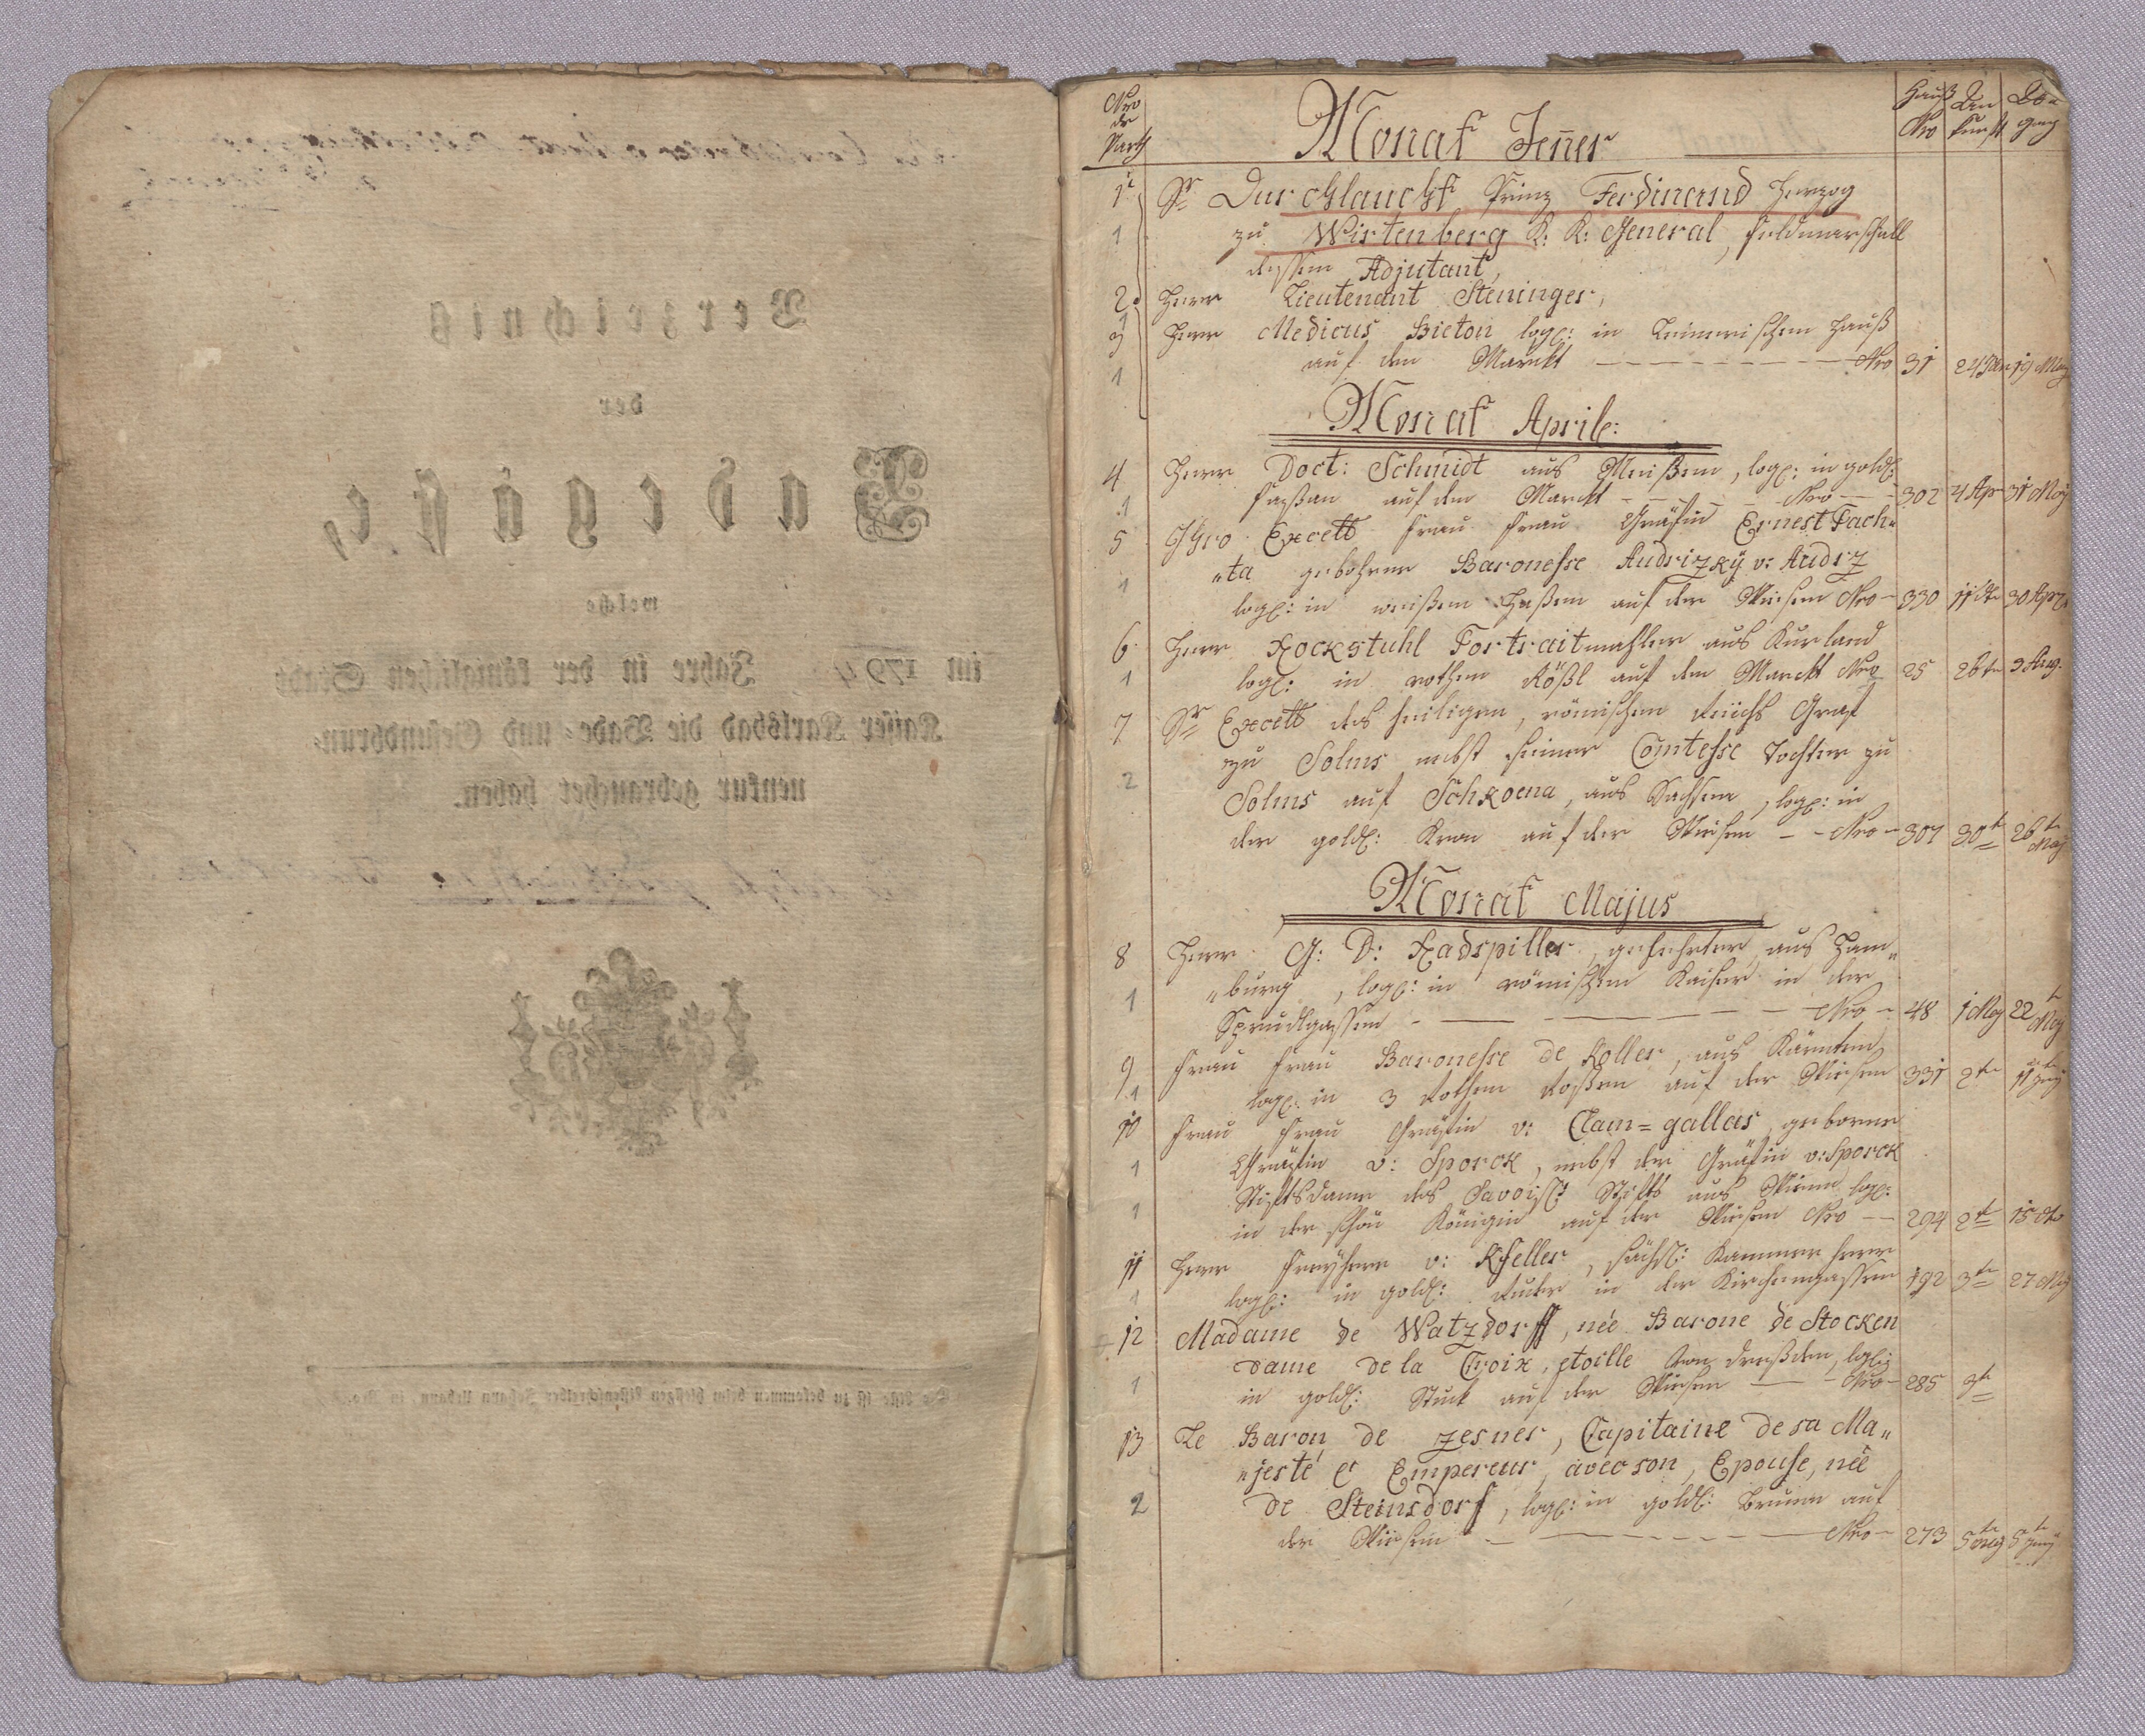 Verzeichniß
der
Badegäste,
welche
im 1794 Jahre in der königlichen Stadt
Kaiser Karlsbad die Bade- und Gesundbrun-
nenkur gebrauchet haben.
Nro
der
Parth
Monat Jeñer
Hauß
Nro
An
kunft
Ab-
gang
1 Sr Durchlaucht Prinz Ferdinand Herzog
1 zu Wirtenberg K: K: General, Feldmarschall
dessen Adjutant,
2 Herr Lieutenant Steninger,
1
3 Herr Medicus Bieton log: in Hauß
1 auf dem Marckt Nro 31 24 Jan 19 May
Monat Aprile:
4 Herr Doct: Schmidt aus Meißen, log: in gold:
1 Faßan auf dem Marckt Nro 302 4 Apr 31 May
5 Ihro Excell Frau Frau Gräfin Ernest Pach„
„ta gebohrne Baronesse Audrizky v: Audrz
1 log: in weißen Haßen auf der Wiesen Nro 330 11te 30 Apr
6 Herr Rockstuhl Portraitmahler aus Kurland
1 log: in rothen Rößl auf dem Marckt Nro 25 26te 3 Aug.
7 Sr Excell des heiligen, römischen Reichs Graf
zu Solms nebst seiner Comtesse Tochter zu
2 Solms auf Schkoena, aus Sachsen, log: in
der gold: Kron auf der Wiesen Nro 307 30te 26te May
Monat Majus
8 Herr G: D: Radspiller, gelehrter aus Ham„
1 „burg, log: in römischen Kaiser in der
Sprudlgassen Nro 48 1 May 22te May
9 Frau Frau Baronesse de Koller, aus Kärnten
1 log: in 3 Rothen Roßen auf der Wiesen 331 2te 11te Juny
10 Frau Frau Gräfin v: Clam=gallas, geborne
1 Gräfin v: Sporck, nebst der Gräfin v: Sporck
Stiftsdame des Savoisch Stifts aus Wienn log:
1 in der schön Königin auf der Wiesen Nro 294 2te 15 dto
11 Herr Freyherr v: Kfeller, sächs: Kammerherr
1 log: in gold: in der Kirchengassen 192 3te 27 May
12 Madame de Watzdorff, née Barone de Stocken
dame de la Croix, etoille von Dreßden, log:
1 in gold: Stuck auf der Wiesen Nro 285 3te
13 Le Baron de Zesner, Capitaine de sa Ma„
„jesté l' Empereur, avec son, Epouse, née
2 de Steinsdorf, log: in gold: Brunn auf
der Wiesen Nro 273 5 May 5te Juny